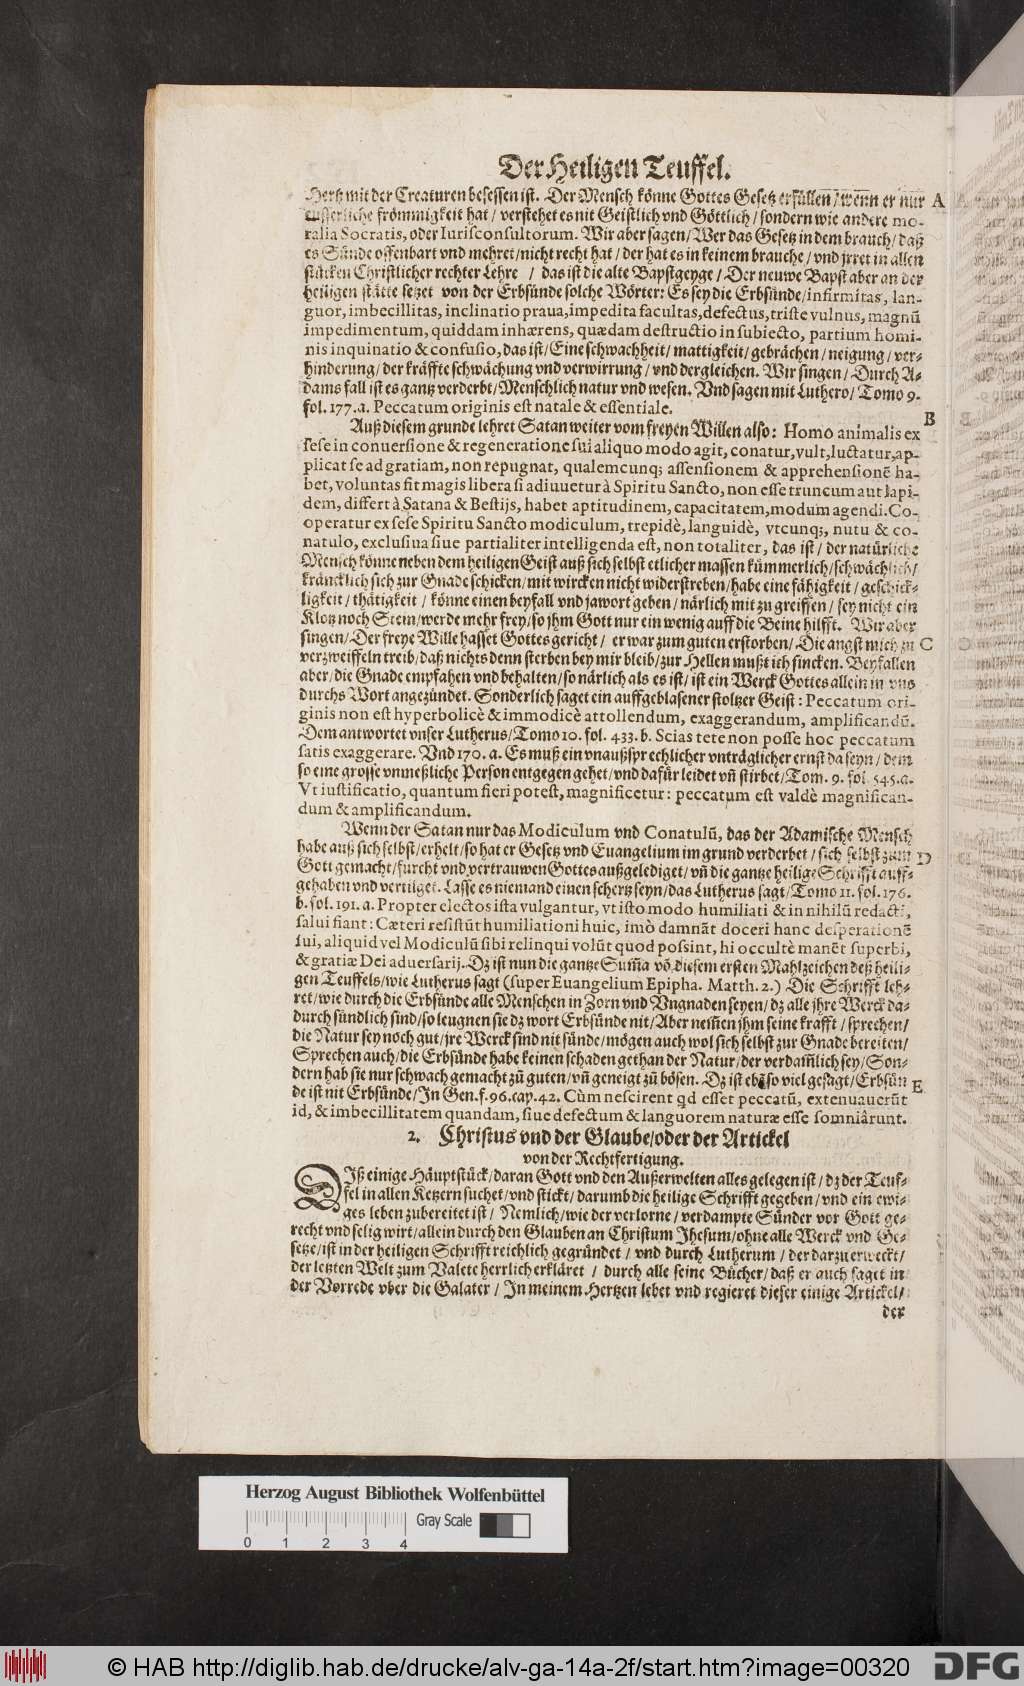 Der Heiligen Teuffel.
Hertz mit der Creaturen besessen ist. Der Mensch könne Gottes Gesetz erfüllen / wenn er nur A
eusserliche frömmigkeit hat / verstehet es nit Geistlich vnd Göttlich / sondern wie andere mo-
ralia Socratis, oder Iurisconsultorum. Wir aber sagen / Wer das Gesetz in dem brauch / daß
es Sünde offenbart vnd mehret / nicht recht hat / der hat es in keinem brauche / vnd jrret in allen
stücken Christlicher rechter Lehre / das ist die alte Bapstgeyge / Der neuwe Bapst aber an der
heiligen stätte setzet von der Erbsünde solche Wörter: Es sey die Erbsünde / infirmitas, lan-
guor, imbecillitas, inclinatio praua, impedita facultas, defectus, triste vulnus, magnū
impedimentum, quiddam inhærens, quædam destructio in subiecto, partium homi-
nis inquinatio & confusio, das ist / Eine schwachheit / mattigkeit / gebrächen / neigung / ver-
hinderung / der kräffte schwächung vnd verwirrung / vnd dergleichen. Wir singen / Durch A-
dams fall ist es gantz verderbt / Menschlich natur vnd wesen. Vnd sagen mit Luthero / Tomo 9.
fol. 177. a. Peccatum originis est natale & essentiale. B
Auß diesem grunde lehret Satan weiter vom freyen Willen also: Homo animalis ex
sese in conuersione & regeneratione sui aliquo modo agit, conatur, vult, luctatur, ap-
plicat se ad gratiam, non repugnat, qualemcunq; assensionem & apprehensionē ha-
bet, voluntas fit magis libera si adiuuetur à Spiritu Sancto, non esse truncum aut lapi-
dem, differt à Satana & Bestijs, habet aptitudinem, capacitatem, modum agendi. Co-
operatur ex sese Spiritu Sancto modiculum, trepidè, languidè, vtcunq;, nutu & co-
natulo, exclusiua siue partialiter intelligenda est, non totaliter, das ist / der natürliche
Mensch könne neben dem heiligen Geist auß sich selbst etlicher massen kümmerlich / schwächlich /
kräncklich sich zur Gnade schicken / mit wircken nicht widerstreben / habe eine fähigkeit / geschick-
ligkeit / thätigkeit / könne einen beyfall vnd jawort geben / närlich mit zu greiffen / sey nicht ein
Klotz noch Stein / werde mehr frey / so jhm Gott nur ein wenig auff die Beine hilfft. Wir aber
singen / Der freye Wille hasset Gottes gericht / er war zum guten erstorben / Die angst mich zu C
verzweiffeln treib / daß nichts denn sterben bey mir bleib / zur Hellen mußt ich sincken. Beyfallen
aber / die Gnade empfahen vnd behalten / so närlich als es ist / ist ein Werck Gottes allein in vns
durchs Wort angezündet. Sonderlich saget ein auffgeblasener stoltzer Geist: Peccatum ori-
ginis non est hyperbolicè & immodicè attollendum, exaggerandum, amplificandū.
Dem antwortet vnser Lutherus / Tomo 10. fol. 433. b. Scias te te non posse hoc peccatum
satis exaggerare. Vnd 170. a. Es muß ein vnaußsprechlicher vnträglicher ernst da seyn / dem
so eine grosse vnmeßliche Person entgegen gehet / vnd dafür leidet vñ stirbet / Tom. 9. fol. 545. a.
Vt iustificatio, quantum fieri potest, magnificetur: peccatum est valdè magnifican-
dum & amplificandum.
Wenn der Satan nur das Modiculum vnd Conatulū, das der Adamische Mensch
habe auß sich selbst / erhelt / so hat er Gesetz vnd Euangelium im grund verderbet / sich selbst zum D
Gott gemacht / furcht vnd vertrauwen Gottes außgelediget / vñ die gantze heilige Schrifft auff-
gehaben vnd vertilget. Lasse es niemand einen schertz seyn / das Lutherus sagt / Tomo 11. fol. 176.
b. fol. 191. a. Propter electos ista vulgantur, vt isto modo humiliati & in nihilū redacti,
salui fiant: Cæteri resistūt humiliationi huic, imò damnāt doceri hanc desperationē
sui, aliquid vel Modiculū sibi relinqui volūt quod possint, hi occultè manēt superbi,
& gratiæ Dei aduersarij. Dz ist nun die gantze Sum̄a vō diesem ersten Mahlzeichen deß heili-
gen Teuffels / wie Lutherus sagt (super Euangelium Epipha. Matth. 2.) Die Schrifft leh-
ret / wie durch die Erbsünde alle Menschen in Zorn vnd Vngnaden seyen / dz alle jhre Werck da-
durch sündlich sind / so leugnen sie dz wort Erbsünde nit / Aber nem̄en jhm seine krafft / sprechen /
die Natur sey noch gut / jre Werck sind nit sünde / mögen auch wol sich selbst zur Gnade bereiten /
Sprechen auch / die Erbsünde habe keinen schaden gethan der Natur / der verdam̄lich sey / Son-
dern hab sie nur schwach gemacht zū guten / vñ geneigt zū bösen. Dz ist ebē so viel gesagt / Erbsün E
de ist nit Erbsünde / In Gen. f. 96. cap. 42. Cùm nescirent qd esset peccatū, extenuauerūt
id, & imbecillitatem quandam, siue defectum & languorem naturæ esse somniârunt.
2. Christus vnd der Glaube / oder der Artickel
von der Rechtfertigung.
DIß einige Häuptstück / daran Gott vnd den Außerwelten alles gelegen ist / dz der Teuf-
fel in allen Ketzern suchet / vnd stickt / darumb die heilige Schrifft gegeben / vnd ein ewi-
ges leben zubereitet ist / Nemlich / wie der verlorne / verdampte Sünder vor Gott ge-
recht vnd selig wirt / allein durch den Glauben an Christum Jhesum / ohne alle Werck vnd Ge-
setze / ist in der heiligen Schrifft reichlich gegründet / vnd durch Lutherum / der darzu erweckt /
der letzten Welt zum Valete herrlich erkläret / durch alle seine Bücher / daß er auch saget in
der Vorrede vber die Galater / In meinem Hertzen lebet vnd regieret dieser einige Artickel /
der
Herzog August Bibliothek Wolfenbüttel
Gray Scale
0 1 2 3 4
© HAB http://diglib.hab.de/drucke/alv-ga-14a-2f/start.htm?image=00320
DFG